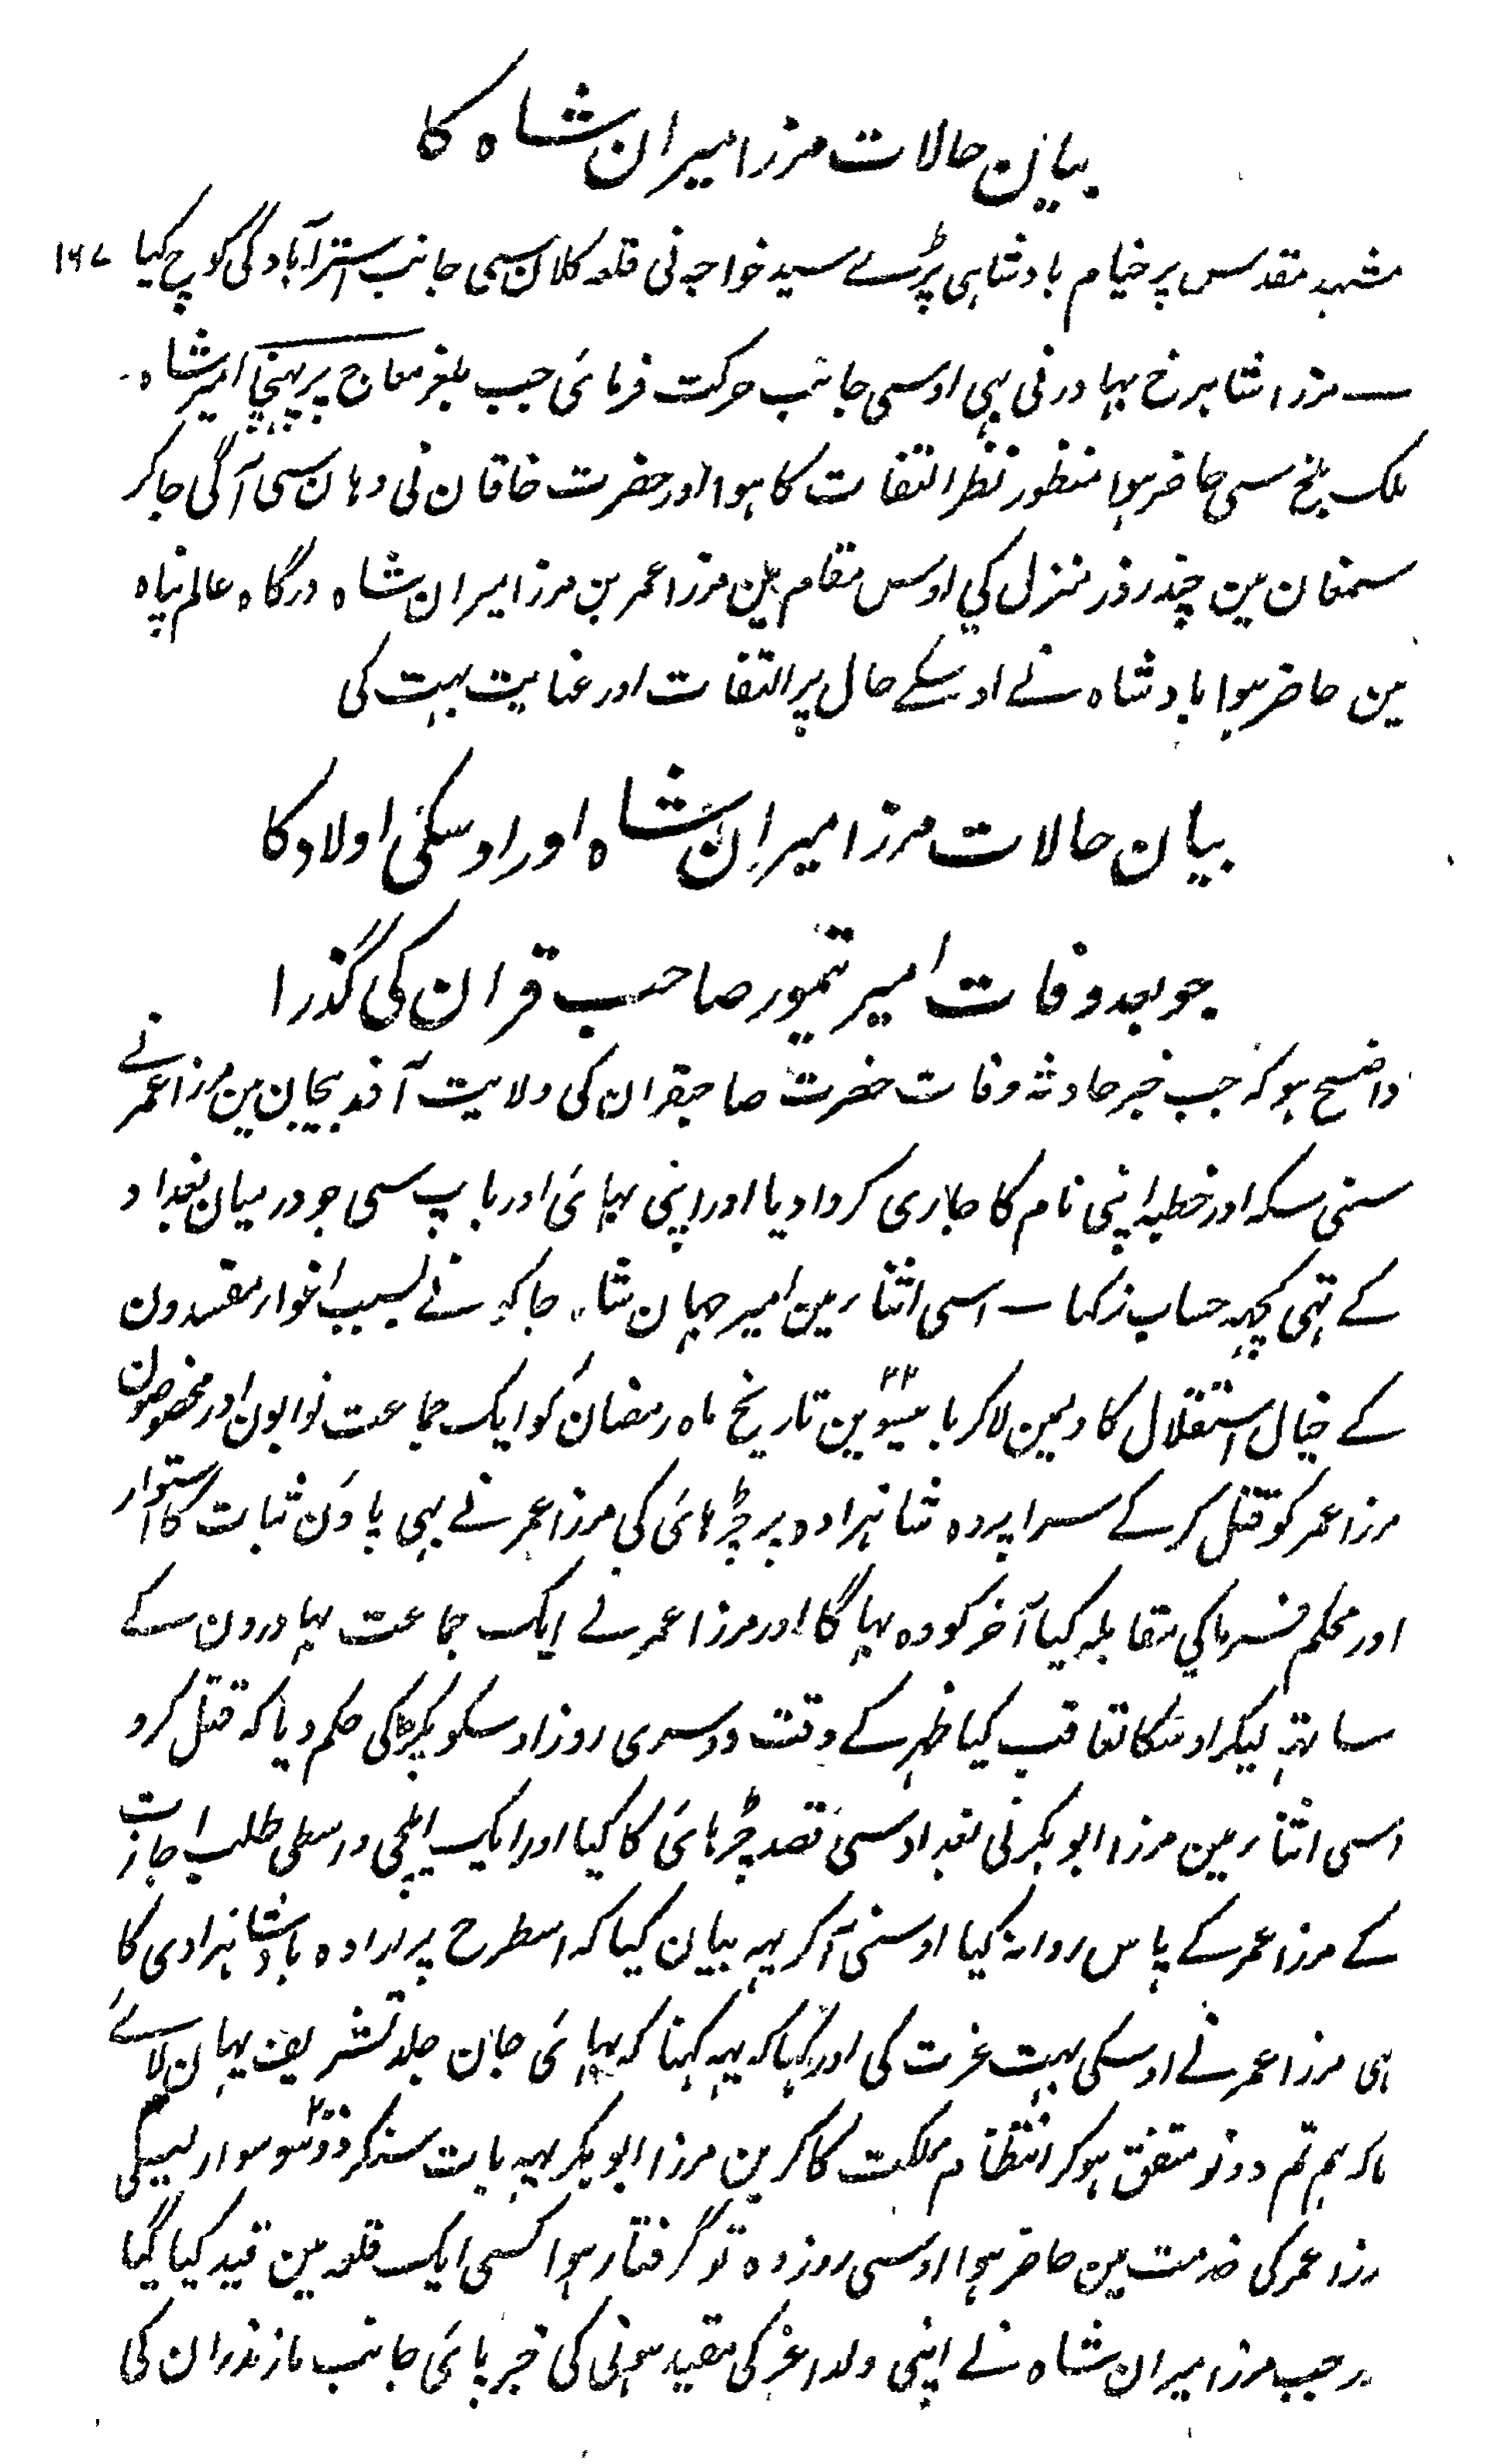 بیان حالات مرزا میران شاہ کا
مشہد مقدس پر خیام بادشاہی پڑے سید خواجہ نی قلعہ کلان سی جانب استرآباد کی کوچ کیا ۱۶۷
مرزا شاہرخ بہادر نی بہی اوسی جانب حرکت فرمائی جب پر پہنچا امیر شاہ
ملک بلخ سی حاضر ہوا منظور نظر التفات کا ہوا اور حضرت خاقان نی وہان سی آگی جاکر
سمنقان مین چند روز منزل کی اوس مقام مین مرزا عمر بن مرزا میران شاہ درگاہ عالم پناہ
مین حاضر ہوا بادشاہ نے اوسکے حال پر التفات اور عنایت بہت کی
بیان حالات مرزا میران شاہ اور اوسکی اولاد کا
جو بعد وفات امیر تیمور صاحب قران کی گذرا
واضح ہو کہ جب خبر حادثہ وفات حضرت صاحبقران کی ولایت آذربیجان مین مرزا عمر نے
سنی سکہ اور خطبہ اپنی نام کا جاری کروا دیا اور اپنی بہائی اور باپ سی جو درمیان بغداد
کے تہی کچہہ حساب نرکہا اسی اثنا مین امیر جہان شاہ جاکو نے بسبب اغوار مفسدون
کے خیال استقلال کا دلمین لاکر بائیسوین ۲۲ تاریخ ماہ رمضان کو ایک جماعت نوابون اور مخصوصون
مرزا عمر کو قتل کر کے سراپردہ شاہزادہ پر چڑہائی کی مرزا عمر نے بہی پاؤن ثبات کا استوار
اور محکم فرماکی مقابلہ کیا آخر کو وہ بہاگا اور مرزا عمر نے ایک جماعت بہادرون کے
ساتہہ لیکر اوسکا تعاقب کیا ظہر کے وقت دوسری روز اوسکو پکڑکی حکم دیا کہ قتل کرو
اسی اثنا مین مرزا ابوبکر نی بغداد سی قصد چڑہائی کا کیا اور ایک ایلچی واسطی طلب اجازت
کے مرزا عمر کے پاس روانہ کیا اوسنی آکر یہہ بیان کیا کہ اسطرح پر ارادہ بادشاہزادی کا
ہی مرزا عمر نے اوسکی بہت عزت کی اور کہا کہ یہہ کہنا کہ بہائی جان جلد تشریف یہان لائے
تاکہ ہم تم دونو متفق ہوکر انتظام مملکت کا کرین مرزا ابوبکر یہہ بات سنکر دوسو ۲۰۰ سوار لیکی
مرزا عمر کی خدمت مین حاضر ہوا اوسی روز وہ تو گرفتار ہوا کسی ایک قلعہ مین قید کیا گیا
اور جب مرزا میران شاہ نے اپنی ولد اعز کی مقید ہونی کی خبر پائی جانب مازندران کی